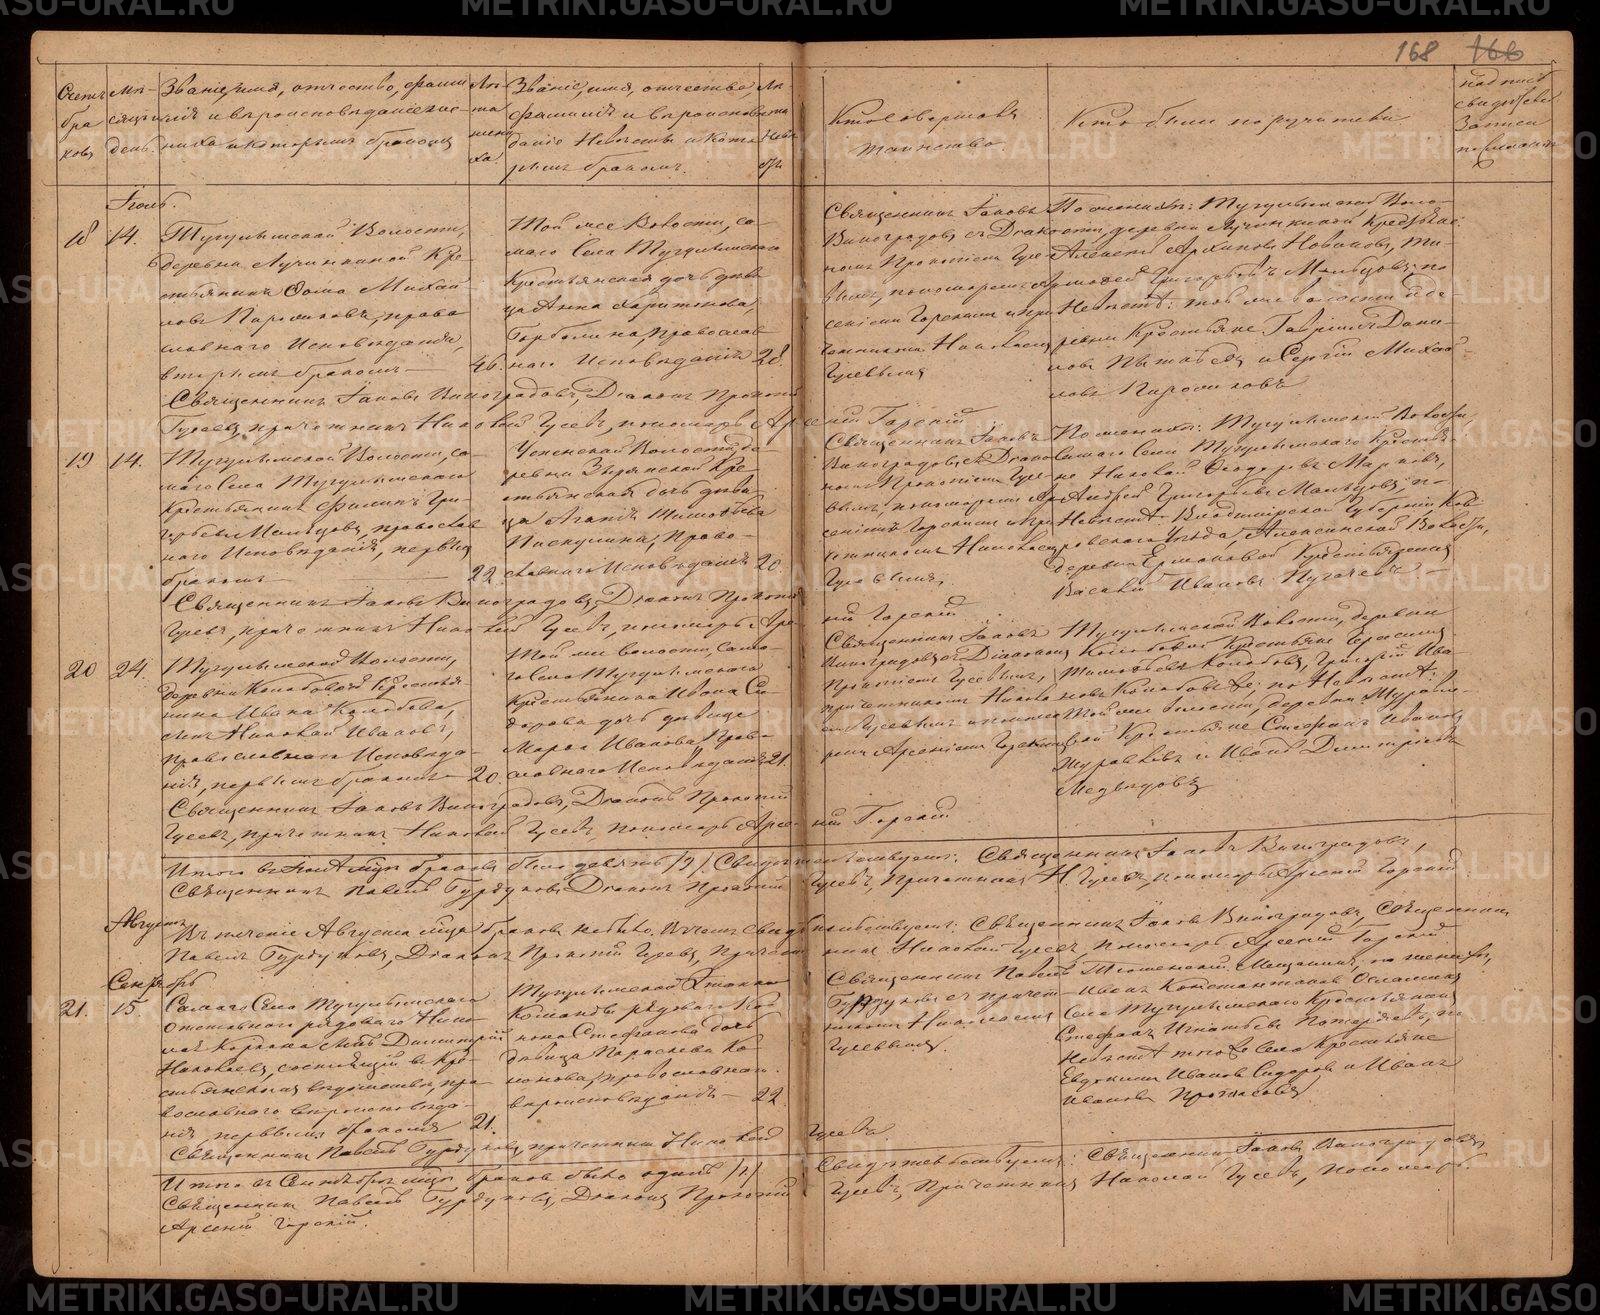 168 166
Счетъ бра ковъ
Мѣ- сяцъ и день.
Званіе, имя, отчество, фами
лія и вѣроисповѣданіе же-
ниха и которымъ бракомъ
Лѣ- та жени ха.
Званіе, имя, отчество
фамилія и вѣроисповѣ
даніе Невѣсты и кото
рымъ бракомъ.
Лѣ та Невѣ сты
Кто совершалъ
таинство
Кто были поручители
Іюль.
18 14.
Тугулымской Волости,
деревни Лучинкиной Кре-
стьянинъ Ѳома Михай
ловъ православнаго Исповѣданія,
вторымъ бракомъ 46.
Той же Волости, са-
маго Села Тугулымскаго
Крестьянская дочь дѣви
ца Анна Харитонова,
Православ
наго Исповѣданія 28.
Священникъ Іаковъ
Виноградовъ съ Діако
номъ Прокопіемъ Гусе
вымъ, пономаремъ Ар
сеніемъ Горскимъ и при
четникомъ Николаемъ
Гусевымъ
По женихѣ: Тугулымской Воло-
сти, деревни Лучинкиной Крестьяне:
Алексей Архиповъ Новиковъ, Ти-
мофей Григорьевъ Мальцовъ; по
Невѣстѣ: той же волости де-
ревни Крестьяне Гавріилъ Дани-
ловъ и Сергій Михай-
ловъ
Священникъ Іаковъ Виноградовъ, Діаконъ Прокопій
Гусевъ, причетникъ Николай Гусевъ, пономарь Арсеній Горскій
19 14.
Тугулымской Волости, са-
маго Села Тугулымскаго
Крестьянинъ Филипъ Гри-
горьевъ Мальцовъ, православ
наго Исповѣданія, первымъ
бракомъ 22.
Успенской Волости, де-
ревни Зырянской Кре-
стьянская дочь дѣви
ца Агапія Тимофеева
Пискулина, Право-
славнаго Исповѣданія 20.
Священникъ Іаковъ
Виноградовъ съ Діако
номъ Прокопіемъ Гусе
вымъ пономаремъ Ар
сеніемъ Горскимъ и при
четникомъ Николаемъ
Гусевымъ.
По женихѣ: Тугулымской Волости
самаго Села Тугулымскаго Крестья
не Николай Ѳедоровъ Марковъ,
Андрей Григорьевъ Мальцовъ; по
Невѣстѣ: Владимірской Губерніи Ков
ровскаго Уѣзда, Алексинской Волости,
деревни Ермаковой Крестьянинъ
Василій Ивановъ Пугачевъ
Священникъ Іаковъ Виноградовъ, Діаконъ Прокопій
Гусевъ, причетникъ Николай Гусевъ, пономарь Арсеній Горскій
20 24.
Тугулымской Волости,
деревни Колобовой Крестья
нина Ивана Колобова
сынъ Николай Ивановъ,
православнаго Исповѣда-
нія, первымъ бракомъ 20.
Той же волости, само
го Села Тугулымскаго
Крестьянина Ивана Си
дорова дочь дѣвица
Марѳа Иванова, Прав-
славнаго Исповѣданія 21.
Священникъ Іаковъ
Виноградовъ съ Діакономъ
Прокопіемъ Гусевымъ,
причетникомъ Никола
емъ Гусевымъ и понома
ремъ Арсеніемъ Горскимъ
Тугулымской Волости, деревни
Колобовой Крестьяне Герасимъ
Тимофеевъ Колобовъ, Григорій Ива-
новъ Колобовъ же; по Невѣстѣ:
Той же волости, деревни Журавле-
вой Крестьяне Стефанъ Ивановъ
Журавлевъ и Иванъ Димитріевъ
Медвѣдовъ
Священникъ Іаковъ Виноградовъ, Діаконъ Прокопій
Гусевъ, причетникъ Николай Гусевъ, пономарь Арсеній Горскій
Итого въ Іюлѣ мцѣ браковъ было девять /9/. Свидѣтельствуетъ: Священникъ Іаковъ Виноградовъ,
Священникъ Павелъ Бурдуковъ, Діаконъ Прокопій Гусевъ, Причетникъ Н. Гусевъ, пономарь Арсеній Горскій.
Августъ
Въ теченіе Августа мца браковъ небыло. Въ чемъ свидѣтельствуетъ: Священникъ Іаковъ Виноградовъ, Священникъ
Павелъ Бурдуковъ, Діаконъ Прокопій Гусевъ, Причетникъ Николай Гусевъ, пономарь Арсеній Горскій.
Сентябрь
21. 15.
Самаго Села Тугулымскаго
отставнаго рядоваго Нико-
лая сынъ Димитрій
Николаевъ, состоящій въ кре-
стьянскомъ вѣдомствѣ, пра-
вославнаго вѣроисповѣда-
нія первымъ бракомъ 21.
Тугулымской Этапной
Команды рядоваго Ко-
нона Стефанова дочь
дѣвица Параскева Ко-
нонова, православнаго
вѣроисповѣданія 22.
Священникъ Павелъ
Бурдуковъ съ причет-
никомъ Николаемъ
Гусевымъ.
Тюменскій Мещанинъ, по женихѣ,
Иванъ Константиновъ
Села Тугулымскаго Крестьянинъ
Стефанъ Игнатьевъ по
Невѣстѣ того же Села Крестьяне
Евдокимъ Ивановъ Сидоровъ и Иванъ
Ивановъ Протасовъ
Священникъ Павелъ Бурдуковъ, причетникъ Николай Гусевъ.
Итого въ Сентябрѣ мцѣ браковъ было одинъ /1/ Свидѣтельствуетъ: Священникъ Іаковъ Виноградовъ,
Священникъ Павелъ Бурдуковъ, Діаконъ Прокопій Гусевъ, Причетникъ Николай Гусевъ, Пономарь
Арсеній Горскій.
METRIKI.GASO-URAL.RU